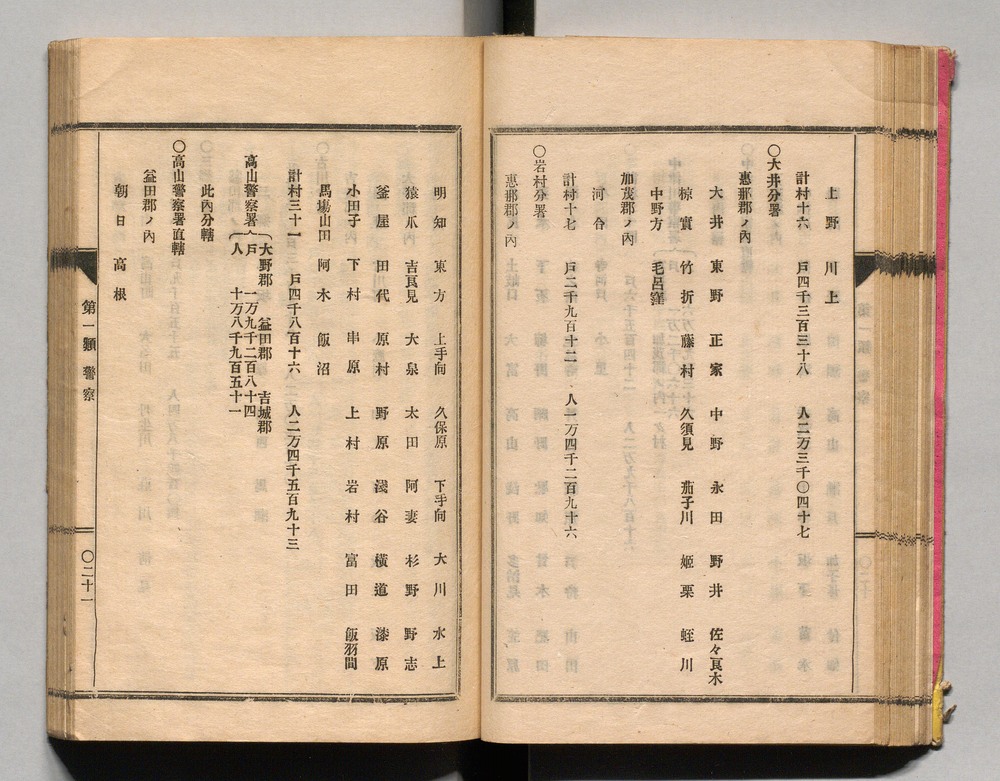 上野 川上
計村十六 戸四千三百三十八 人二万三千〇四十七
〇大井分署
惠那郡ノ內
大井 東野 正家 中野 永田 野井 佐々良木
椋實 竹折 藤村 久須見 茄子川 姬栗 蛭川
中野方 毛呂窪
加茂郡ノ內
河合
計村十七 戸二千九百十二 人一万四千二百九十六
〇岩村分署
惠那郡ノ內
明知 東方 上手向 久保原 下手向 大川 水上
猿爪 吉良見 大泉 太田 阿妻 杉野 野志
釜屋 田代 原村 野原 淺谷 橫道 漆原
小田子 下村 串原 上村 岩村 富田 飯羽間
馬場山田 阿木 飯沼
計村三十一 戸四千八百十六 人二万四千五百九十三
大野郡 益田郡 吉城郡
高山警察署 戸 一万九千二百八十四
人 十万八千九百五十一
此內分轄
〇高山警察署直轄
益田郡ノ內
朝日 高根
第一類 警察
〇二十一